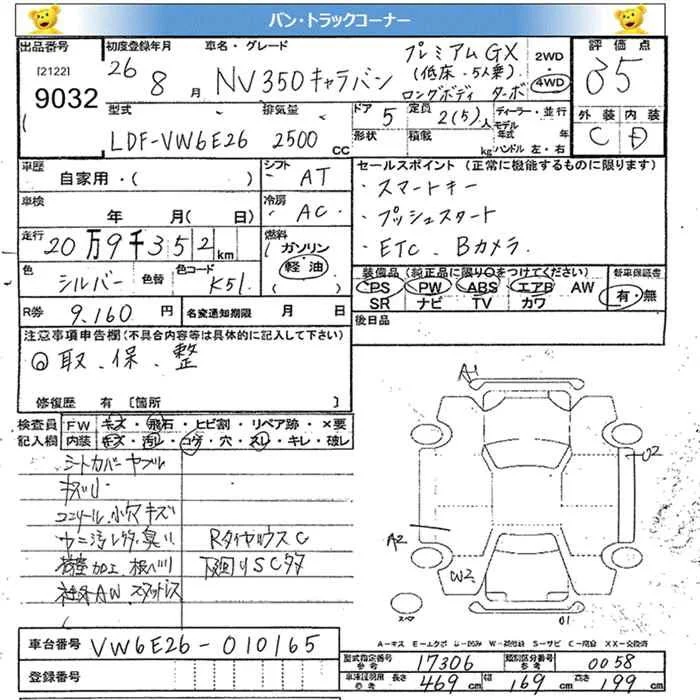 バン・トラックコーナー
出品番号
[2122]
9032
初度登録年月
26 8 月
車名・グレード
NV350キャラバン
プレミアムGX
(低床・5人乗)
ロングボディ ターボ
2WD
・
4WD
評価点
外装 内装
C D
型式
LDF-VW6E26
排気量
2500 cc
ドア 5
形状
定員 2(5)人
積載 kg
ディーラー・並行
モデル年式 年
ハンドル 左・右
車歴
自家用・( )
シフト
AT
車検
年 月( 日)
冷房
AC
走行
20万9千352km
燃料
ガソリン
軽油
色
シルバー 色替
色コード K51
R券 9.160 円
名変通知期限 月 日
セールスポイント (正常に機能するものに限ります)
・スマートキー
・プッシュスタート
・ETC. Bカメラ.
装備品(純正品に限り○をつけてください)
PS PW ABS エアB AW
SR ナビ TV カワ
新車保証書
有・無
後日品
注意事項申告欄(不具合内容等は具体的に記入して下さい)
取.保.整
修復歴 有 [箇所
検査員
記入欄
FW キズ・飛石・ヒビ割・リペア跡・×要
内装 キズ・汚レ・コゲ・穴・スレ・キレ・破レ
シートカバーヤブレ
小穴キズ
RタイヤハウスC
下廻りSCタタ
社外AW スタッドレス
A1
U2
A2
W2
U1
スペア
車台番号 VW6E26-010165
登録番号
型式指定番号
参考
17306
類別区分番号
参考
0058
車庫証明用
参考
長さ 469cm 幅 169cm 高さ 199cm